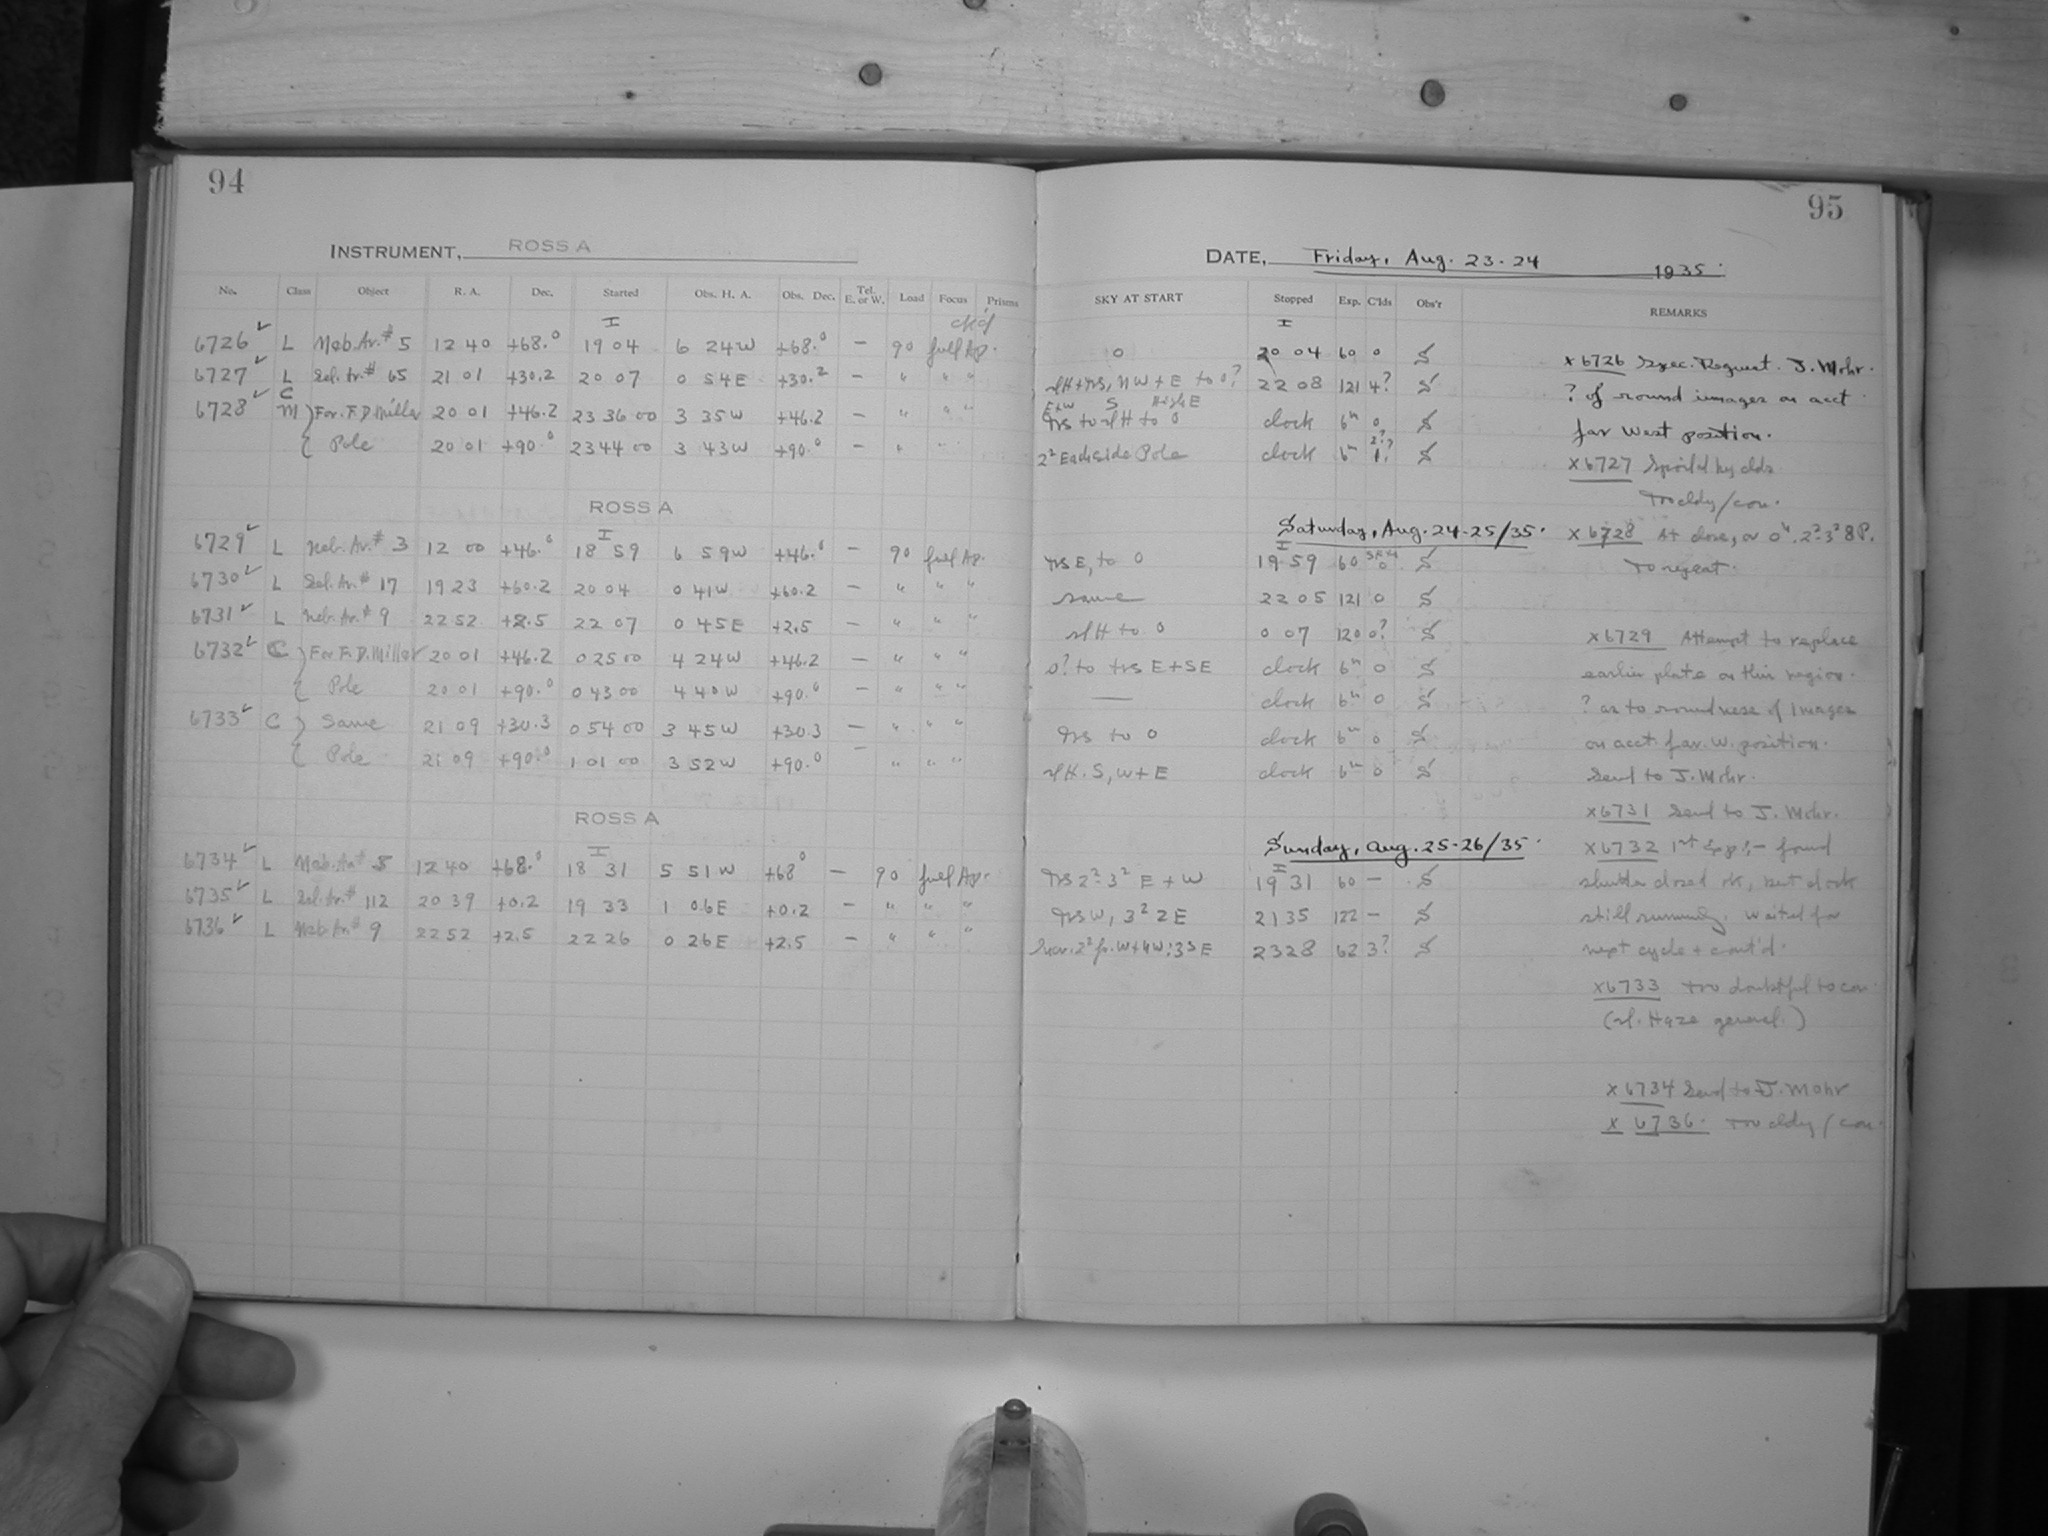 94
INSTRUMENT, ROSS A
No. Class Object R. A. Dec. Started Obs. H. A. Obs. Dec. Tel. E. or W. Load Focus Prisms
I
6726 L Neb. Ar. # 5 12 40 +68.0 19 04 6 24 W +68.0 — 90 full Ap.
6727 L Sel. Ar. # 65 21 01 +30.2 20 07 0 54 E +30.2 — " " "
C
6728 M For. F. D. Miller 20 01 +46.2 23 36 00 3 35 W +46.2 — " " "
Pole 20 01 +90.0 23 44 00 3 43 W +90.0 — " "
ROSS A
I
6729 L Neb. Ar. # 3 12 00 +46.0 18 59 6 59 W +46.0 — 90 full Ap.
6730 L Sel. Ar. # 17 19 23 +60.2 20 04 0 41 W +60.2 — " " "
6731 L Neb. Ar. # 9 22 52 +2.5 22 07 0 45 E +2.5 — " " "
6732 C For F. D. Miller 20 01 +46.2 0 25 00 4 24 W +46.2 — " " "
Pole 20 01 +90.0 0 43 00 4 40 W +90.0 — " " "
6733 C Same 21 09 +30.3 0 54 00 3 45 W +30.3 — " " "
Pole 21 09 +90.0 1 01 00 3 52 W +90.0 — " " "
ROSS A
I
6734 L Neb. Ar. # 5 12 40 +68.0 18 31 5 51 W +68.0 — 90 full Ap.
6735 L Sel. Ar. # 112 20 39 +0.2 19 33 1 06 E +0.2 — " " "
6736 L Neb. Ar. # 9 22 52 +2.5 22 26 0 26 E +2.5 — " " "
95
DATE, Friday, Aug. 23-24 1935.
SKY AT START Stopped Exp. C'lds Obs'r REMARKS
I
0 20 04 60 0 S
slH + trs, NW + E to 0? 22 08 121 4? S
E+W S High E
trs to slH to 0 clock 6m 0 S
2² Each side Pole clock 6m S
Saturday, Aug. 24-25/35.
I
trs E, to 0 19 59 60 0 S
same 22 05 121 0 S
slH to 0 0 07 120 0? S
0? to trs E + SE clock 6m 0 S
— clock 6m 0 S
trs to 0 clock 6m 0 S
slH. S, W + E clock 6m 0 S
Sunday, Aug. 25-26/35.
I
trs 2²-3² E + W 19 31 60 — S
trs W, 3² 2 E 21 35 122 — S
23 28 62 3? S
x 6726 Spec. Request. J. Mohr.
? of round images on acct
far West position.
x 6727 Spoiled by clds
Too cldy/con.
x 6728 At close, or 0h. 2²-3² 8 P.
To repeat.
x 6729 Attempt to replace
earlier plate on this region.
? as to roundness of Images
on acct. far. W. position.
Send to J. Mohr.
x 6731 Send to J. Mohr.
x 6732 1st Exp: — found
shutter closed ok, but clock
still running. Waited for
next cycle + cont'd.
x 6733 too doubtful to con.
(sl. Haze general.)
x 6734 Send to J. Mohr
x 6736. Too cldy/con.